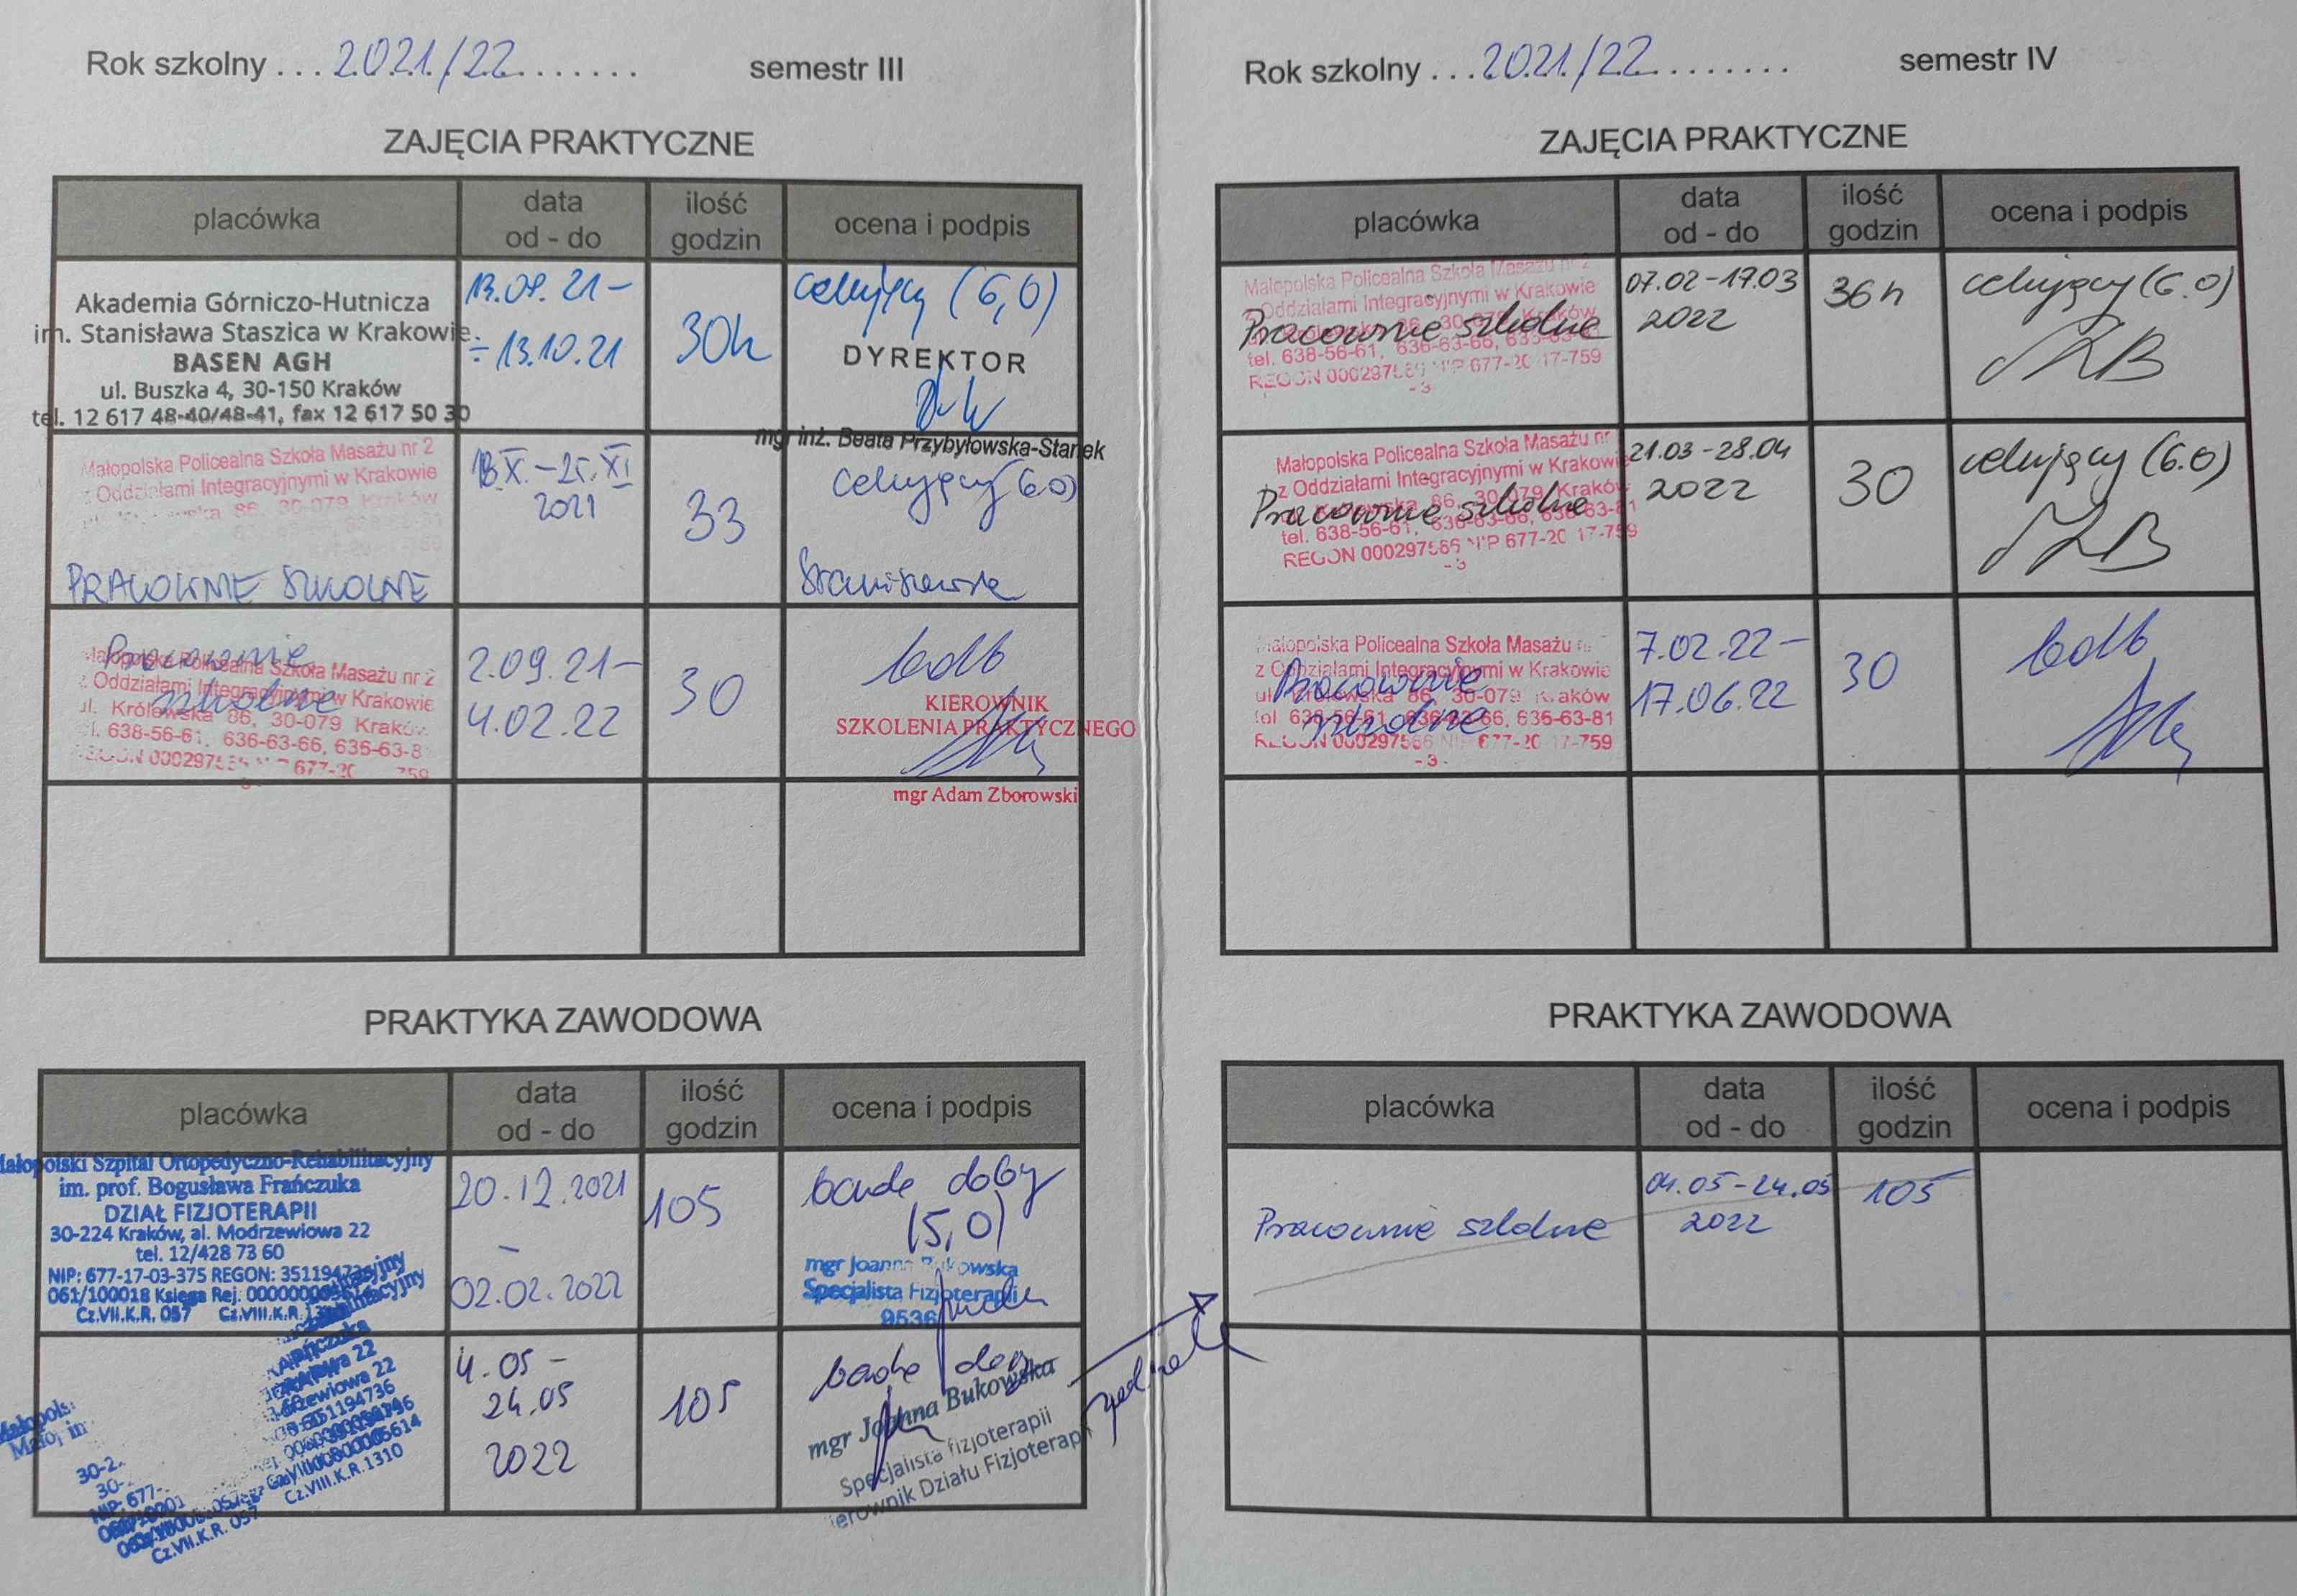 Rok szkolny ... 2021/22 ....... semestr III
ZAJĘCIA PRAKTYCZNE
placówka
data
od - do
ilość
godzin
ocena i podpis
Akademia Górniczo-Hutnicza
im. Stanisława Staszica w Krakowie
BASEN AGH
ul. Buszka 4, 30-150 Kraków
tel. 12 617 48-40/48-41, fax 12 617 50 30
13.09.21 -
÷ 13.10.21
30h
celujący (6,0)
DYREKTOR
mgr inż. Beata Przybyłowska-Stanek
Małopolska Policealna Szkoła Masażu nr 2
z Oddziałami Integracyjnymi w Krakowie
86, 30-079 Kraków
PRACOWNIE SZKOLNE
18.X. - 25.XI
2021
33
celujący (6.0)
Pracownie
szkolne
Małopolska Policealna Szkoła Masażu nr 2
z Oddziałami Integracyjnymi w Krakowie
ul. Królewska 86, 30-079 Kraków
638-56-61, 636-63-66, 636-63-8
2.09.21 -
4.02.22
30
bdb
KIEROWNIK
SZKOLENIA PRAKTYCZNEGO
mgr Adam Zborowski
PRAKTYKA ZAWODOWA
placówka
data
od - do
ilość
godzin
ocena i podpis
Małopolski Szpital Ortopedyczno-Rehabilitacyjny
im. prof. Bogusława Frańczuka
DZIAŁ FIZJOTERAPII
30-224 Kraków, al. Modrzewiowa 22
tel. 12/428 73 60
NIP: 677-17-03-375 REGON: 351194736
061/100018 Księga Rej.
Cz.VII.K.R. 057 Cz.VIII.K.R.
20.12.2021
-
02.02.2022
105
(5,0)
mgr Joanna Bukowska
Specjalista Fizjoterapii
9536
Cz.VII.K.R. 057 Cz.VIII.K.R.1310
4.05 -
24.05
2022
105
mgr Joanna Bukowska
Specjalista fizjoterapii
Kierownik Działu Fizjoterapii
Rok szkolny ... 2021/22 ........ semestr IV
ZAJĘCIA PRAKTYCZNE
placówka
data
od - do
ilość
godzin
ocena i podpis
Małopolska Policealna Szkoła Masażu nr 2
z Oddziałami Integracyjnymi w Krakowie
Pracownie szkolne
tel. 638-56-61, 636-63-66,
REGON 000297566 NIP 677-20-17-759
-3
07.02 - 17.03
2022
36h
celujący (6.0)
Małopolska Policealna Szkoła Masażu nr
z Oddziałami Integracyjnymi w Krakowie
86, 30-079 Kraków
Pracownie szkolne
tel. 638-56-61, 636-63-66, 636-63-81
REGON 000297566 NIP 677-20-17-759
-3
21.03 - 28.04
2022
30
celujący (6.0)
Małopolska Policealna Szkoła Masażu
z Oddziałami Integracyjnymi w Krakowie
Pracownie
ul. Królewska 86, 30-079 Kraków
szkolne
tel. 638-56-61, 636-63-66, 636-63-81
REGON 000297566 NIP 677-20-17-759
-3-
7.02.22 -
17.06.22
30
bdb
PRAKTYKA ZAWODOWA
placówka
data
od - do
ilość
godzin
ocena i podpis
Pracownie szkolne
04.05 - 24.05
2022
105